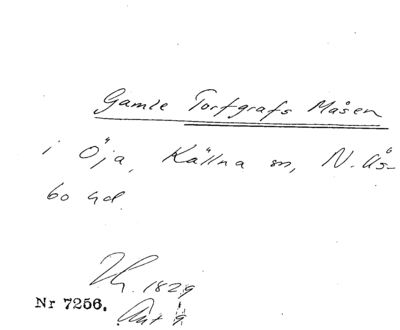 Gamle Torfgrafs Måsen
i Öja, Källna sn, N. Ås-
bo hd.
1829
Nr 7256.